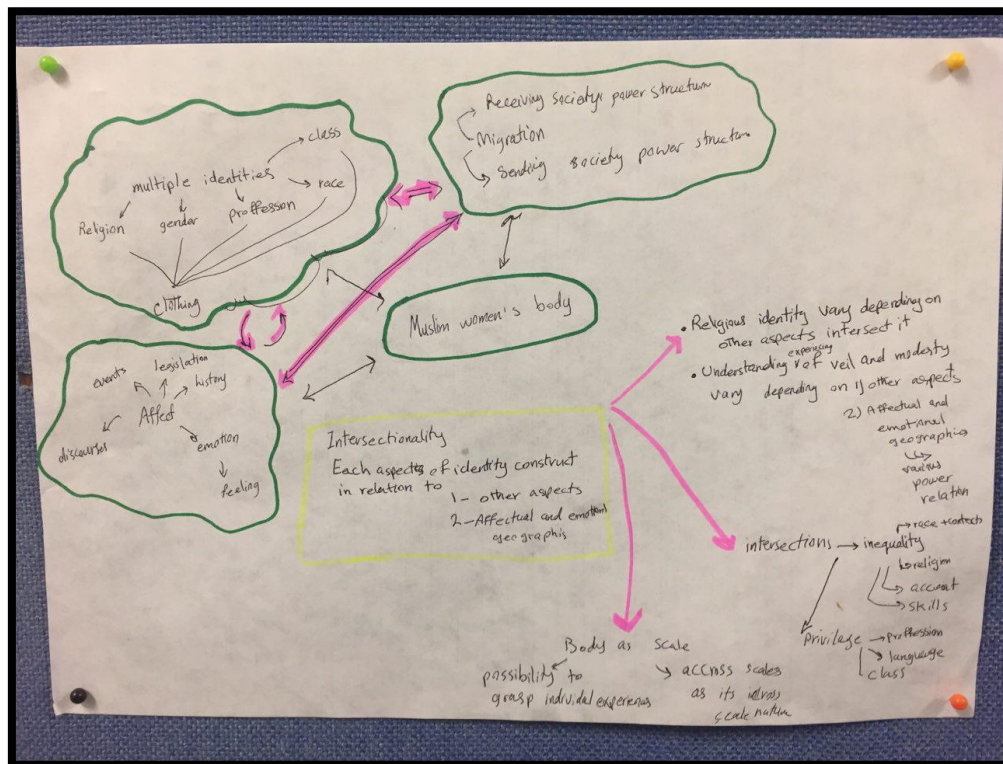 class
multiple identities
race
Religion
gender
proffession
clothing
Receiving society power structure
Migration
Sending society power structure
Muslim women's body
events
legislation
history
Affect
discourses
emotion
feeling
Intersectionality
Each aspects of identity construct
in relation to
1- other aspects
2-Affectual and emotional
geographis
• Religious identity vary depending on
other aspects intersect it
experiencing
• Understanding of veil and modesty
vary depending on 1) other aspects
2) Affectual and
emotional
geographis
various
power
relation
intersections → inequality
race + contexts
religion
accent
skills
privilage
proffession
language
class
Body as scale
possibility to
grasp individal experiences
accross scales
as its
scale nature